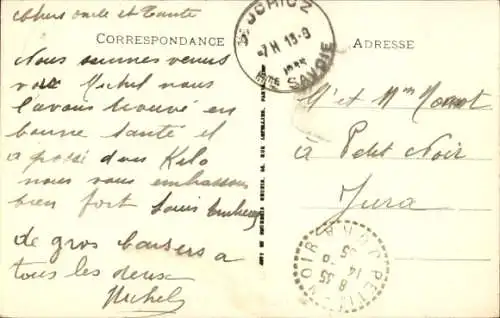 Chers oncle et Tante
CORRESPONDANCE
Nous sommes venus
voir Michel nous
l'avons trouvé en
bonne santé il
a possé deux Kilo
nous vous embrassons
bien fort Louis
de gros baisers a
tous les deux
Michel
HTE SAVOIE
7H 13-8
ADRESSE
Mr et Mme
à Petit Noir
Jura
PETIT NOIR
8 35
14